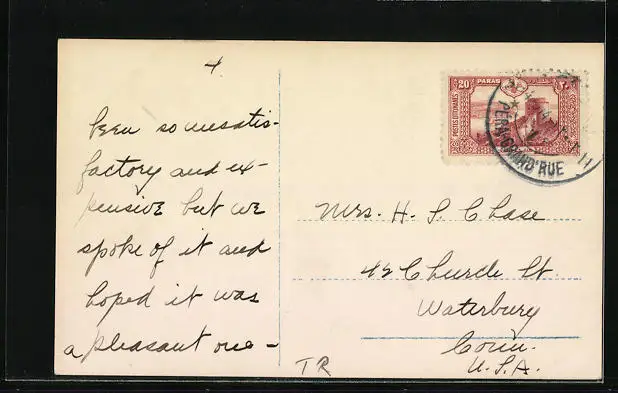 4.
been so unsatis-
factory and ex-
pensive but we
spoke of it and
hoped it was
a pleasant one -
20 PARAS
POSTES OTTOMANES
PERA GRAND'RUE
Mrs. H. S. Chase
42 Church St
Waterbury
Conn.
U.S.A.
TR